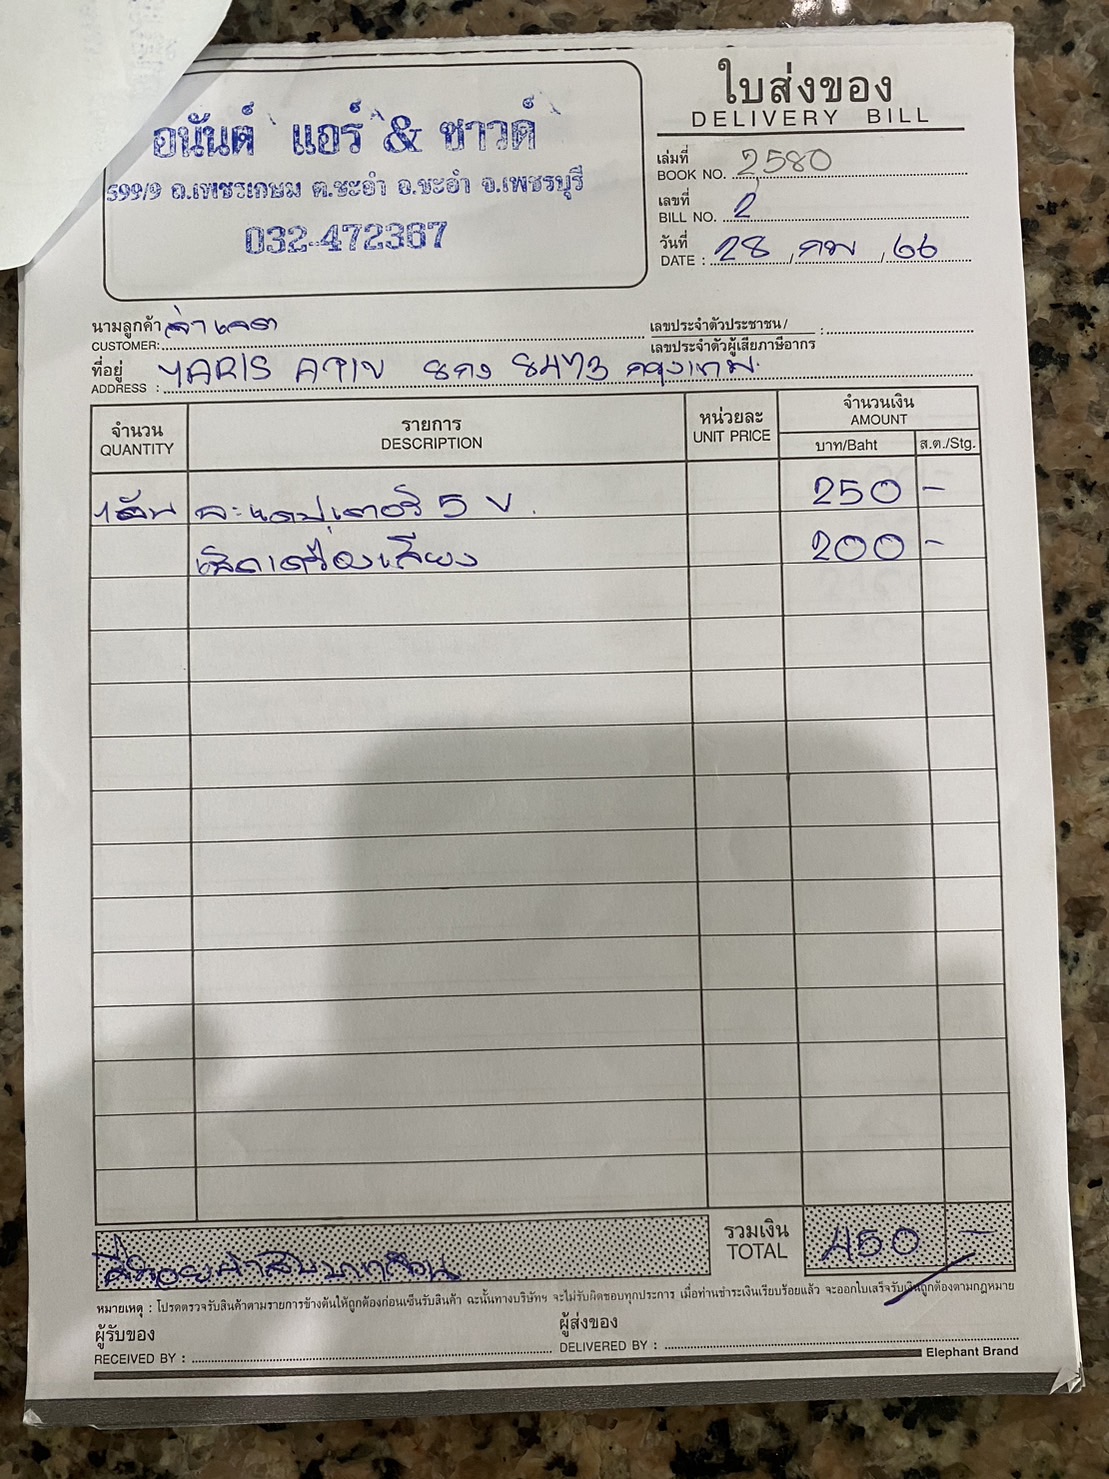 อนันต์ แอร์ & ซาวด์
599/9 ถ.เพชรเกษม ต.ชะอำ อ.ชะอำ จ.เพชรบุรี
032-472367
ใบส่งของ
DELIVERY BILL
เล่มที่
BOOK NO. 2580
เลขที่
BILL NO. 2
วันที่
DATE : 28 / กพ / 66
นามลูกค้า
CUSTOMER:
เลขประจำตัวประชาชน/
เลขประจำตัวผู้เสียภาษีอากร :
ที่อยู่
ADDRESS : YARIS ATIV 8กง 8473 กรุงเทพ
จำนวน
QUANTITY
รายการ
DESCRIPTION
หน่วยละ
UNIT PRICE
จำนวนเงิน
AMOUNT
บาท/Baht ส.ต./Stg.
1 อัน อะแดปเตอร์ 5 V. 250 -
เช็คเครื่องเสียง 200 -
รวมเงิน
TOTAL
450 -
สี่ร้อยห้าสิบบาทถ้วน
หมายเหตุ : โปรดตรวจรับสินค้าตามรายการข้างต้นให้ถูกต้องก่อนเซ็นรับสินค้า ฉะนั้นทางบริษัทฯ จะไม่รับผิดชอบทุกประการ เมื่อท่านชำระเงินเรียบร้อยแล้ว จะออกใบเสร็จรับเงินถูกต้องตามกฎหมาย
ผู้รับของ
RECEIVED BY :
ผู้ส่งของ
DELIVERED BY :
Elephant Brand